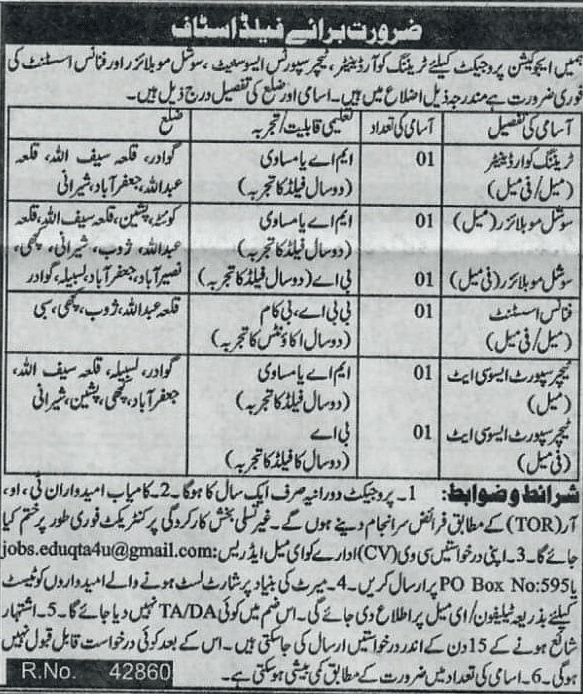 ضرورت برائے فیلڈ اسٹاف
ہمیں ایجوکیشن پروجیکٹ کیلئے ٹریننگ کوآرڈینیٹر، ٹیچر سپورٹس ایسوسیٹ، سوشل موبلائزر اور فنانس اسسٹنٹ کی
فوری ضرورت ہے مندرجہ ذیل اضلاع میں ہیں۔ اسامی اور ضلع کی تفصیل درج ذیل ہیں۔
آسامی کی تفصیل آسامی کی تعداد تعلیمی قابلیت/تجربہ ضلع
ٹریننگ کوارڈینیٹر 01 ایم اے یا مساوی گوادر، قلعہ سیف اللہ، قلعہ
(میل/فی میل) (دو سال فیلڈ کا تجربہ) عبداللہ، جعفر آباد، شیرانی
سوشل موبلائزر (میل) 01 ایم اے یا مساوی کوئٹہ، پشین، قلعہ سیف اللہ، قلعہ
(دو سال فیلڈ کا تجربہ) عبداللہ، ژوب، شیرانی، کچھی،
سوشل موبلائزر (فی میل) 01 بی اے (دو سال فیلڈ کا تجربہ) نصیر آباد، جعفر آباد، لسبیلہ، گوادر
فنانس اسسٹنٹ 01 بی بی اے، بی کام قلعہ عبداللہ، ژوب، کچھی، سبی
(میل/فی میل) (دو سال اکاؤنٹس کا تجربہ)
ٹیچر سپورٹ ایسوسی ایٹ 01 ایم اے یا مساوی گوادر، لسبیلہ، قلعہ سیف اللہ،
(میل) (دو سال فیلڈ کا تجربہ) جعفر آباد، کچھی، پشین، شیرانی
ٹیچر سپورٹ ایسوسی ایٹ 01 بی اے
(فی میل) (دو سال کا فیلڈ کا تجربہ)
شرائط و ضوابط: 1۔ پروجیکٹ دورانیہ صرف ایک سال کا ہوگا۔ 2۔ کامیاب امیدواران ٹی، او،
آر (TOR) کے مطابق فرائض سرانجام دینے ہوں گے۔ غیر تسلی بخش کارکردگی پر کنٹریکٹ فوری طور پر ختم کیا
جائے گا۔ 3۔ اپنی درخواستیں سی وی (CV) ادارے کو ای میل ایڈریس: jobs.eduqta4u@gmail.com
یا PO Box No:595 پر ارسال کریں۔ 4۔ میرٹ کی بنیاد پر شارٹ لسٹ ہونے والے امیدواروں کو ٹیسٹ
کیلئے بذریعہ ٹیلیفون/ای میل پر اطلاع دی جائے گی۔ اس ضمن میں کوئی TA/DA نہیں دیا جائے گا۔ 5۔ اشتہار
شائع ہونے کے 15 دن کے اندر درخواستیں ارسال کی جاسکتی ہیں۔ اس کے بعد کوئی درخواست قابل قبول نہیں
ہوگی۔ 6۔ اسامی کی تعداد میں ضرورت کے مطابق کمی بیشی ہوسکتی ہے۔
R.No. 42860